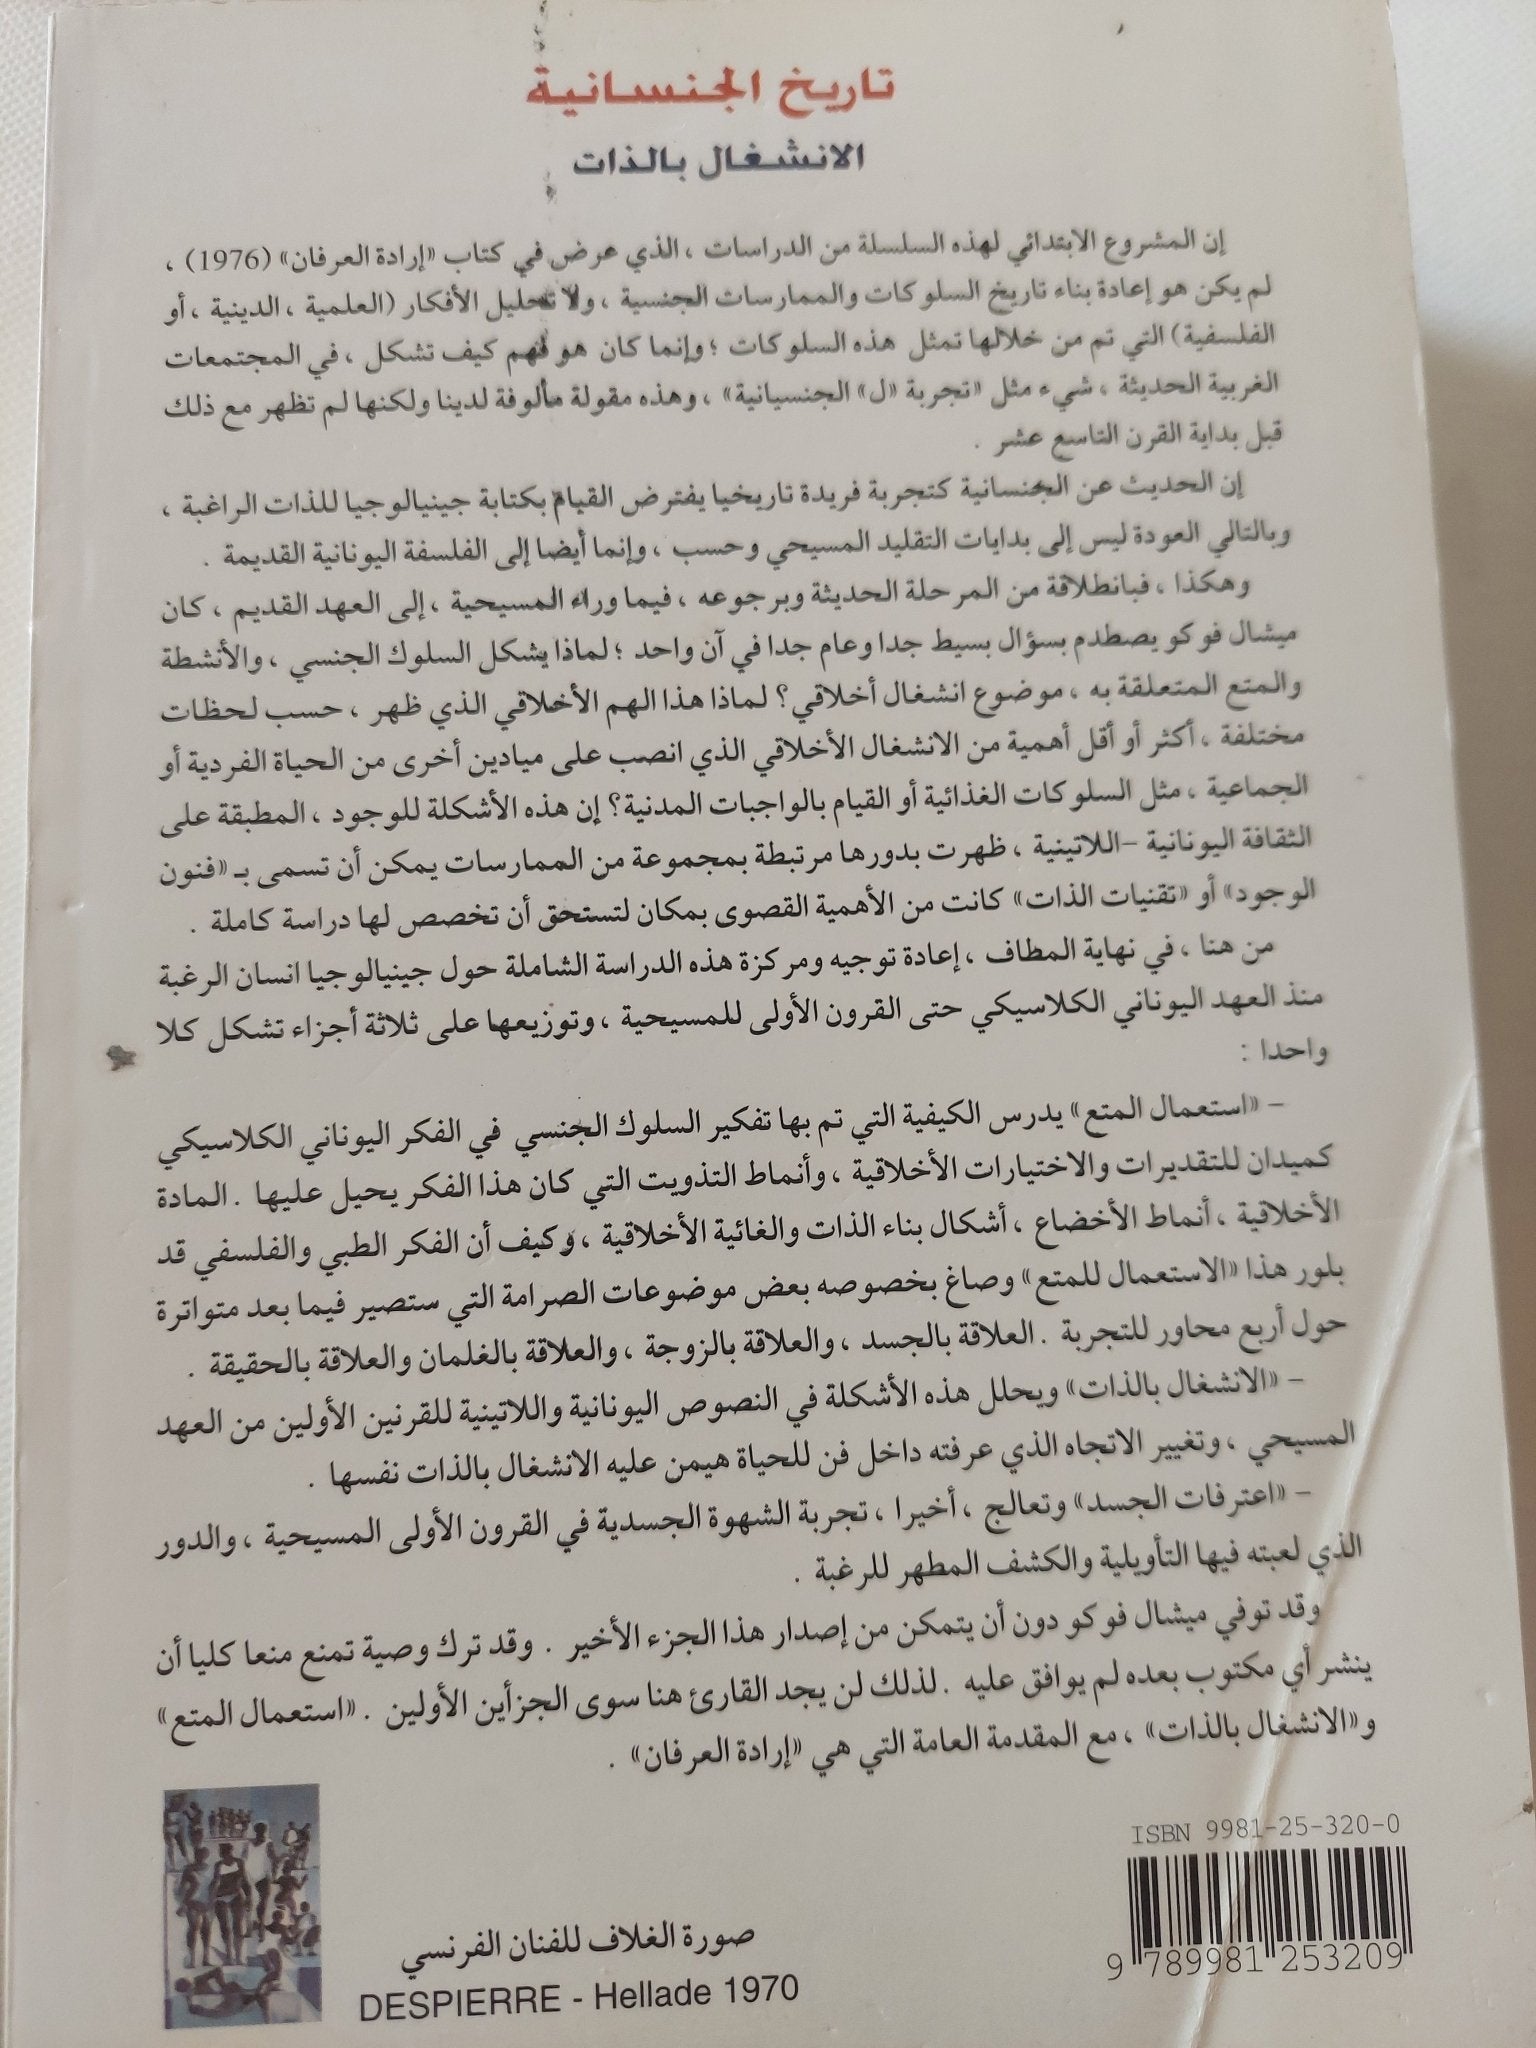 تاريخ الجنسانية
الانشغال بالذات
إن المشروع الابتدائي لهذه السلسلة من الدراسات ، الذي عرض في كتاب «إرادة العرفان» (1976) ،
لم يكن هو إعادة بناء تاريخ السلوكات والممارسات الجنسية ، ولا تحليل الأفكار (العلمية ، الدينية ، أو
الفلسفية) التي تم من خلالها تمثل هذه السلوكات ؛ وإنما كان هو فهم كيف تشكل ، في المجتمعات
الغربية الحديثة ، شيء مثل «تجربة «ل» الجنسيانية» ، وهذه مقولة مألوفة لدينا ولكنها لم تظهر مع ذلك
قبل بداية القرن التاسع عشر .
إن الحديث عن الجنسانية كتجربة فريدة تاريخيا يفترض القيام بكتابة جينيالوجيا للذات الراغبة ،
وبالتالي العودة ليس إلى بدايات التقليد المسيحي وحسب ، وإنما أيضا إلى الفلسفة اليونانية القديمة .
وهكذا ، فبانطلاقة من المرحلة الحديثة وبرجوعه ، فيما وراء المسيحية ، إلى العهد القديم ، كان
ميشال فوكو يصطدم بسؤال بسيط جدا وعام جدا في آن واحد ؛ لماذا يشكل السلوك الجنسي ، والأنشطة
والمتع المتعلقة به ، موضوع انشغال أخلاقي ؟ لماذا هذا الهم الأخلاقي الذي ظهر ، حسب لحظات
مختلفة ، أكثر أو أقل أهمية من الانشغال الأخلاقي الذي انصب على ميادين أخرى من الحياة الفردية أو
الجماعية ، مثل السلوكات الغذائية أو القيام بالواجبات المدنية؟ إن هذه الأشكلة للوجود ، المطبقة على
الثقافة اليونانية –اللاتينية ، ظهرت بدورها مرتبطة بمجموعة من الممارسات يمكن أن تسمى بـ «فنون
الوجود» أو «تقنيات الذات» كانت من الأهمية القصوى بمكان لتستحق أن تخصص لها دراسة كاملة .
من هنا ، في نهاية المطاف ، إعادة توجيه ومركزة هذه الدراسة الشاملة حول جينيالوجيا انسان الرغبة
منذ العهد اليوناني الكلاسيكي حتى القرون الأولى للمسيحية ، وتوزيعها على ثلاثة أجزاء تشكل كلا
واحدا :
– «استعمال المتع» يدرس الكيفية التي تم بها تفكير السلوك الجنسي في الفكر اليوناني الكلاسيكي
كميدان للتقديرات والاختيارات الأخلاقية ، وأنماط التذويت التي كان هذا الفكر يحيل عليها . المادة
الأخلاقية ، أنماط الأخضاع ، أشكال بناء الذات والغائية الأخلاقية ، وكيف أن الفكر الطبي والفلسفي قد
بلور هذا «الاستعمال للمتع» وصاغ بخصوصه بعض موضوعات الصرامة التي ستصير فيما بعد متواترة
حول أربع محاور للتجربة . العلاقة بالجسد ، والعلاقة بالزوجة ، والعلاقة بالغلمان والعلاقة بالحقيقة .
– «الانشغال بالذات» ويحلل هذه الأشكلة في النصوص اليونانية واللاتينية للقرنين الأولين من العهد
المسيحي ، وتغيير الاتجاه الذي عرفته داخل فن للحياة هيمن عليه الانشغال بالذات نفسها .
– «اعترفات الجسد» وتعالج ، أخيرا ، تجربة الشهوة الجسدية في القرون الأولى المسيحية ، والدور
الذي لعبته فيها التأويلية والكشف المطهر للرغبة .
وقد توفي ميشال فوكو دون أن يتمكن من إصدار هذا الجزء الأخير . وقد ترك وصية تمنع منعا كليا أن
ينشر أي مكتوب بعده لم يوافق عليه . لذلك لن يجد القارئ هنا سوى الجزأين الأولين . «استعمال المتع»
و«الانشغال بالذات» ، مع المقدمة العامة التي هي «إرادة العرفان» .
ISBN 9981-25-320-0
9 789981 253209
صورة الغلاف للفنان الفرنسي
DESPIERRE - Hellade 1970